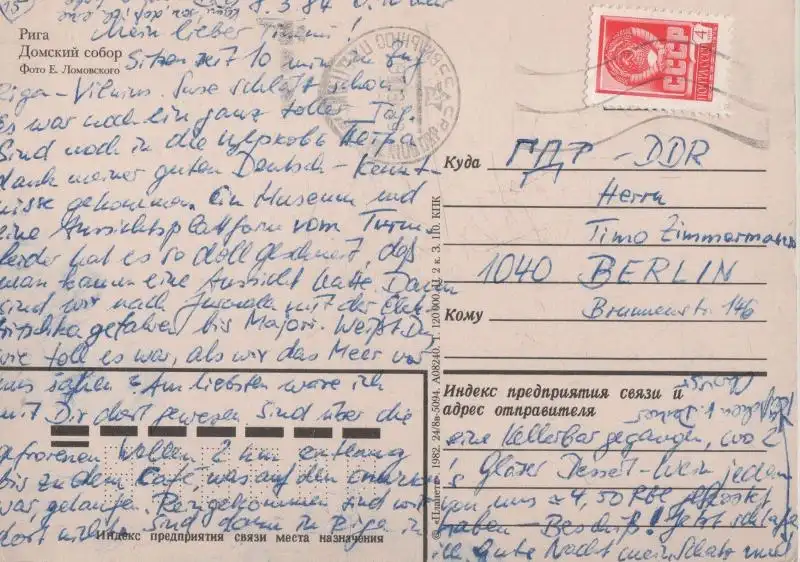 8.3.84
Mein lieber Timmi!
Рига
Домский собор
Фото Е. Ломовского
Sitzen seit 10 min im Zug
Riga-Vilnius. Suse schläft schon
Es war noch ein ganz toller Tag.
Sind noch in die церковь Петра
dank meiner guten Deutsch-Kennt-
nisse gekommen. Ein Museum und
eine Aussichtsplattform vom Turm
leider hat es so doll geschneit, daß
man kaum eine Aussicht hatte. Dann
sind wir nach Jurmala mit der Elek-
tritschka gefahren bis Majori. Weißt Du
wie toll es war, als wir das Meer vor
uns sahen? Am liebsten wäre ich
mit Dir dort gewesen. Sind über die
gefrorenen Wellen 2 km entlang
bis zu dem Café, was auf den
war, gelaufen. Reingekommen sind wir
dort nicht. Sind dann in Riga in
Индекс предприятия связи места назначения
4
СССР
ПОЧТА
Куда
ГДР - DDR
Herrn
Timo Zimmermann
1040 BERLIN
Кому
Brunnenstr. 146
© «Планета», 1982. 24/8в-5094. А08240. Т. 120 000. Ц. 2 к. З. 110. КПК
Индекс предприятия связи и
адрес отправителя
eine Kellerbar gegangen, wo 2
Gläser Dessert-Wein jeden
von uns 4,50 Rbl gekostet
haben - Beschiß! Jetzt schlafe
ich. Gute Nacht mein Schatz und